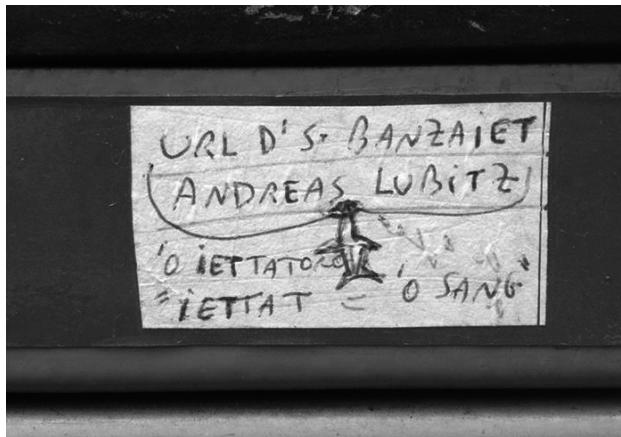 URL D' S. BANZAIET
ANDREAS LUBITZ
'O IETTATORE
"IETTAT = 'O SANG"